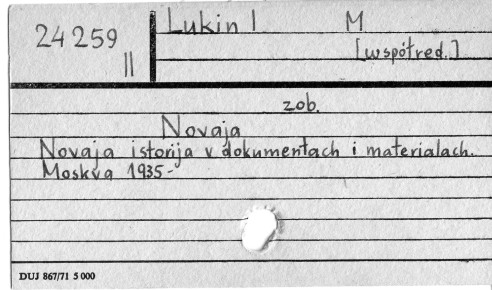 24259
II
Lukin I M
[współred.]
zob.
Novaja
Novaja istorija v dokumentach i materialach.
Moskva 1935-
DUJ 867/71 5 000